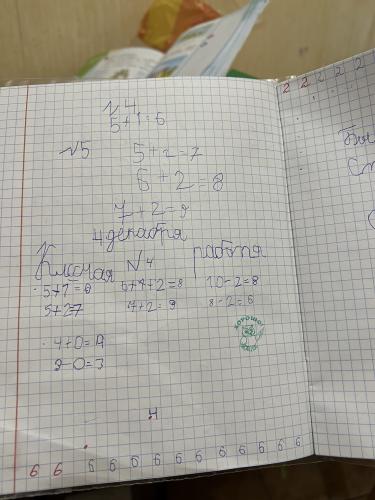 № 4
5+1=6
№5 5+2=7
6+2=8
7+2=9
4 декабря
Классная работа
№ 4
5+1=6 6+1+2=8 10-2=8
5+2=7 7+2=9 8-2=6
4+0=4
3-0=3
ХОРОШО!
4
6 6 6 6 6 6 6 6 6 6 6 6 6
2 2 2 2 2